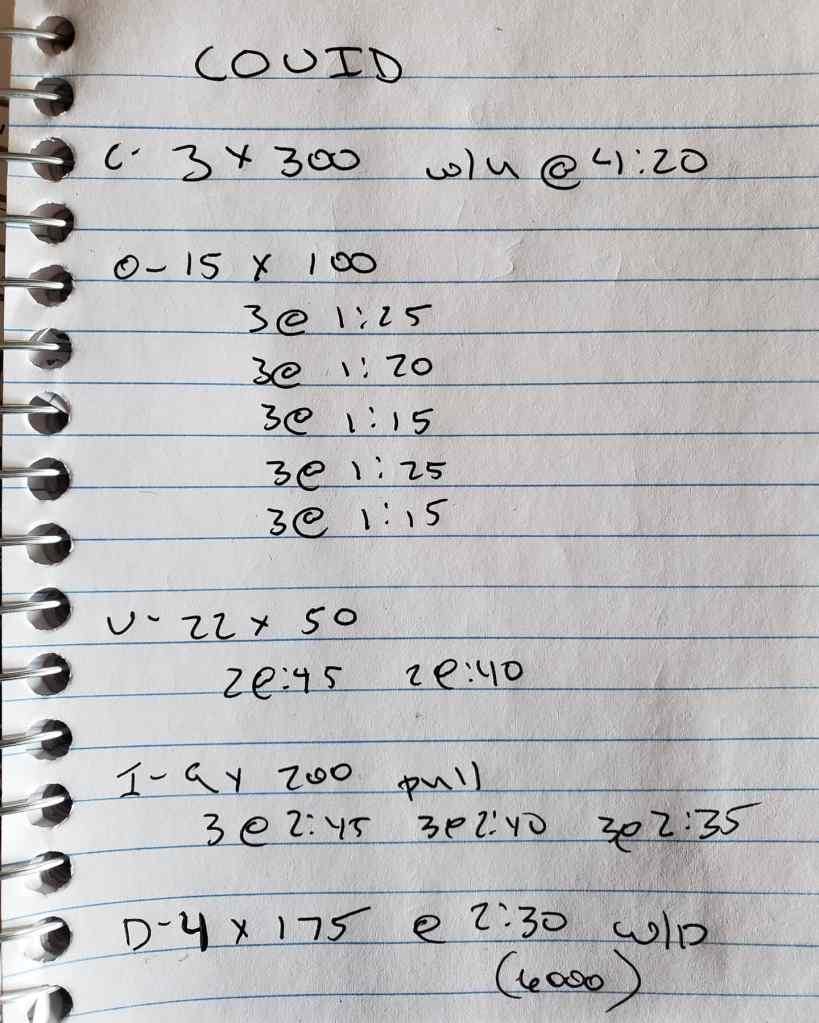 COVID
C- 3 x 300 w/u @ 4:20
O- 15 x 100
3@ 1:25
3@ 1:20
3@ 1:15
3@ 1:25
3@ 1:15
V- 22 x 50
2@:45 2@:40
I- 9 x 200 pull
3@2:45 3@2:40 3@2:35
D-4 x 175 @ 2:30 w/D
(6000)